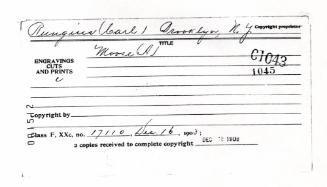 Rungius (Carl) Brooklyn, N. Y. Copyright proprietor
TITLE
Moose (A)
ENGRAVINGS
CUTS
AND PRINTS
c
C1043
1045
Copyright by
Class F, XXc, no. 17110, Dec. 16, 1908;
2 copies received to complete copyright DEC 16 1908